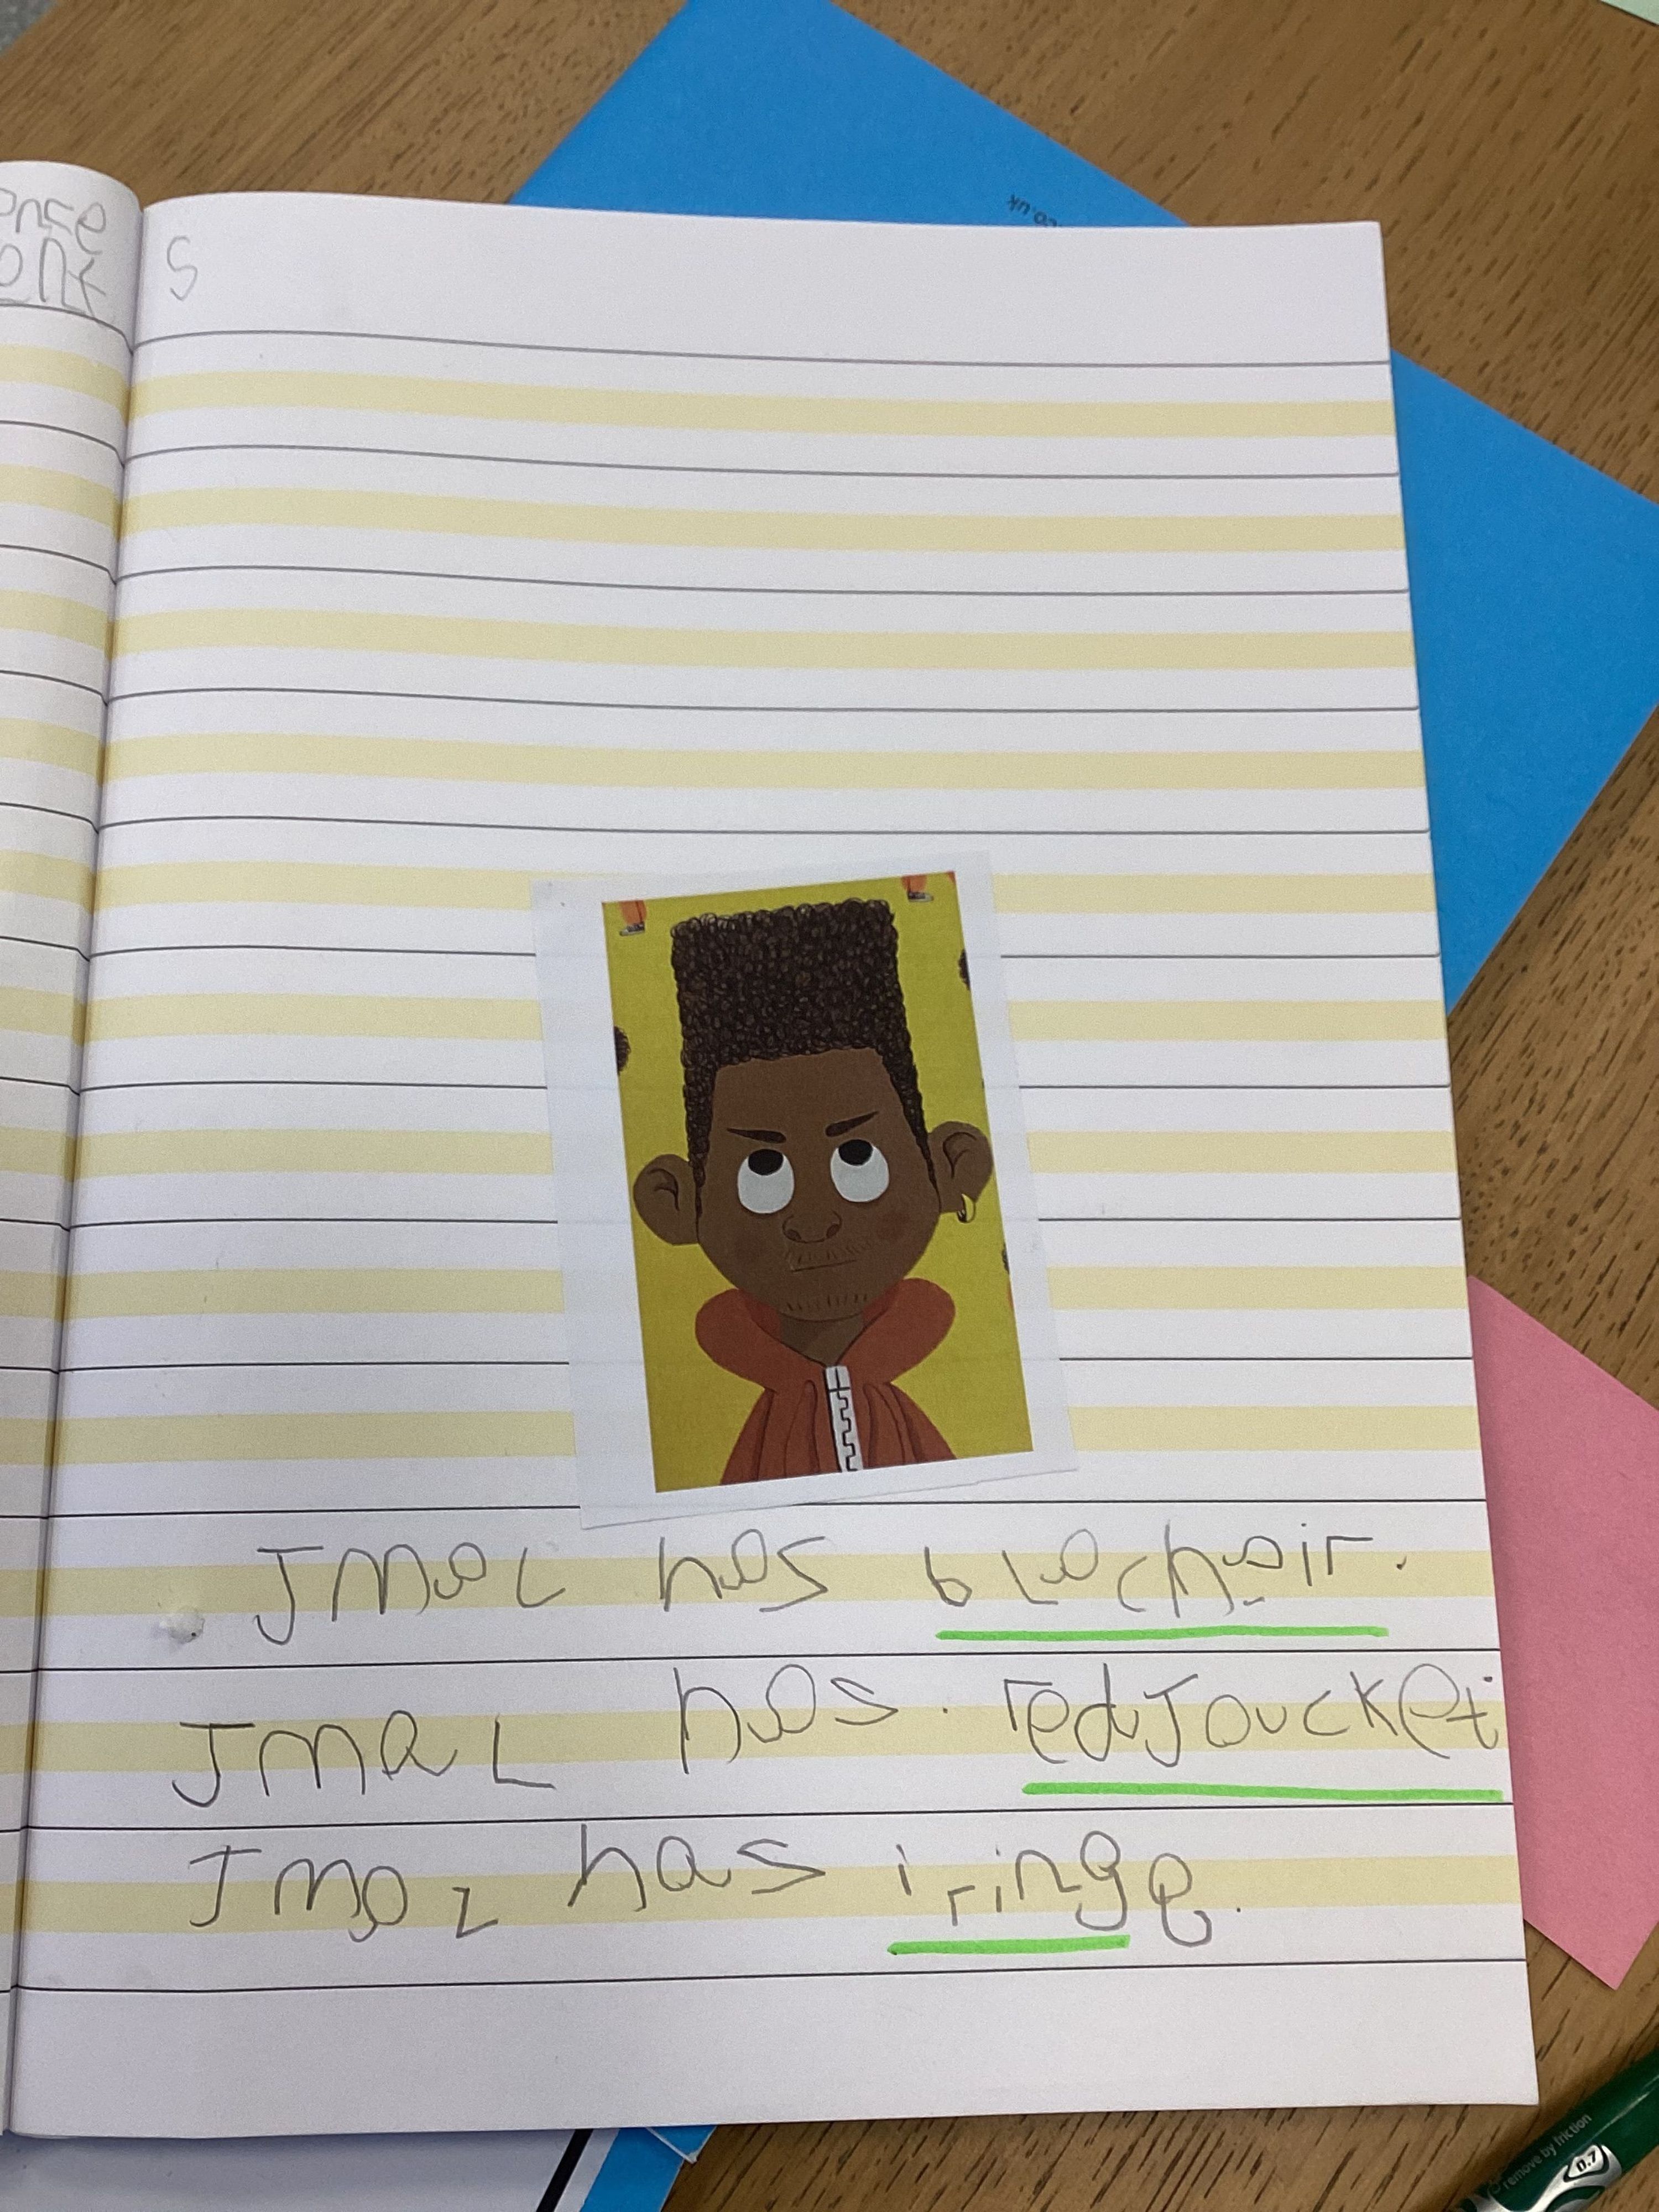 S
Jmal has blachair.
Jmal has. red Joucket
Jmal has i ringe.
co.uk
remove by friction
0.7